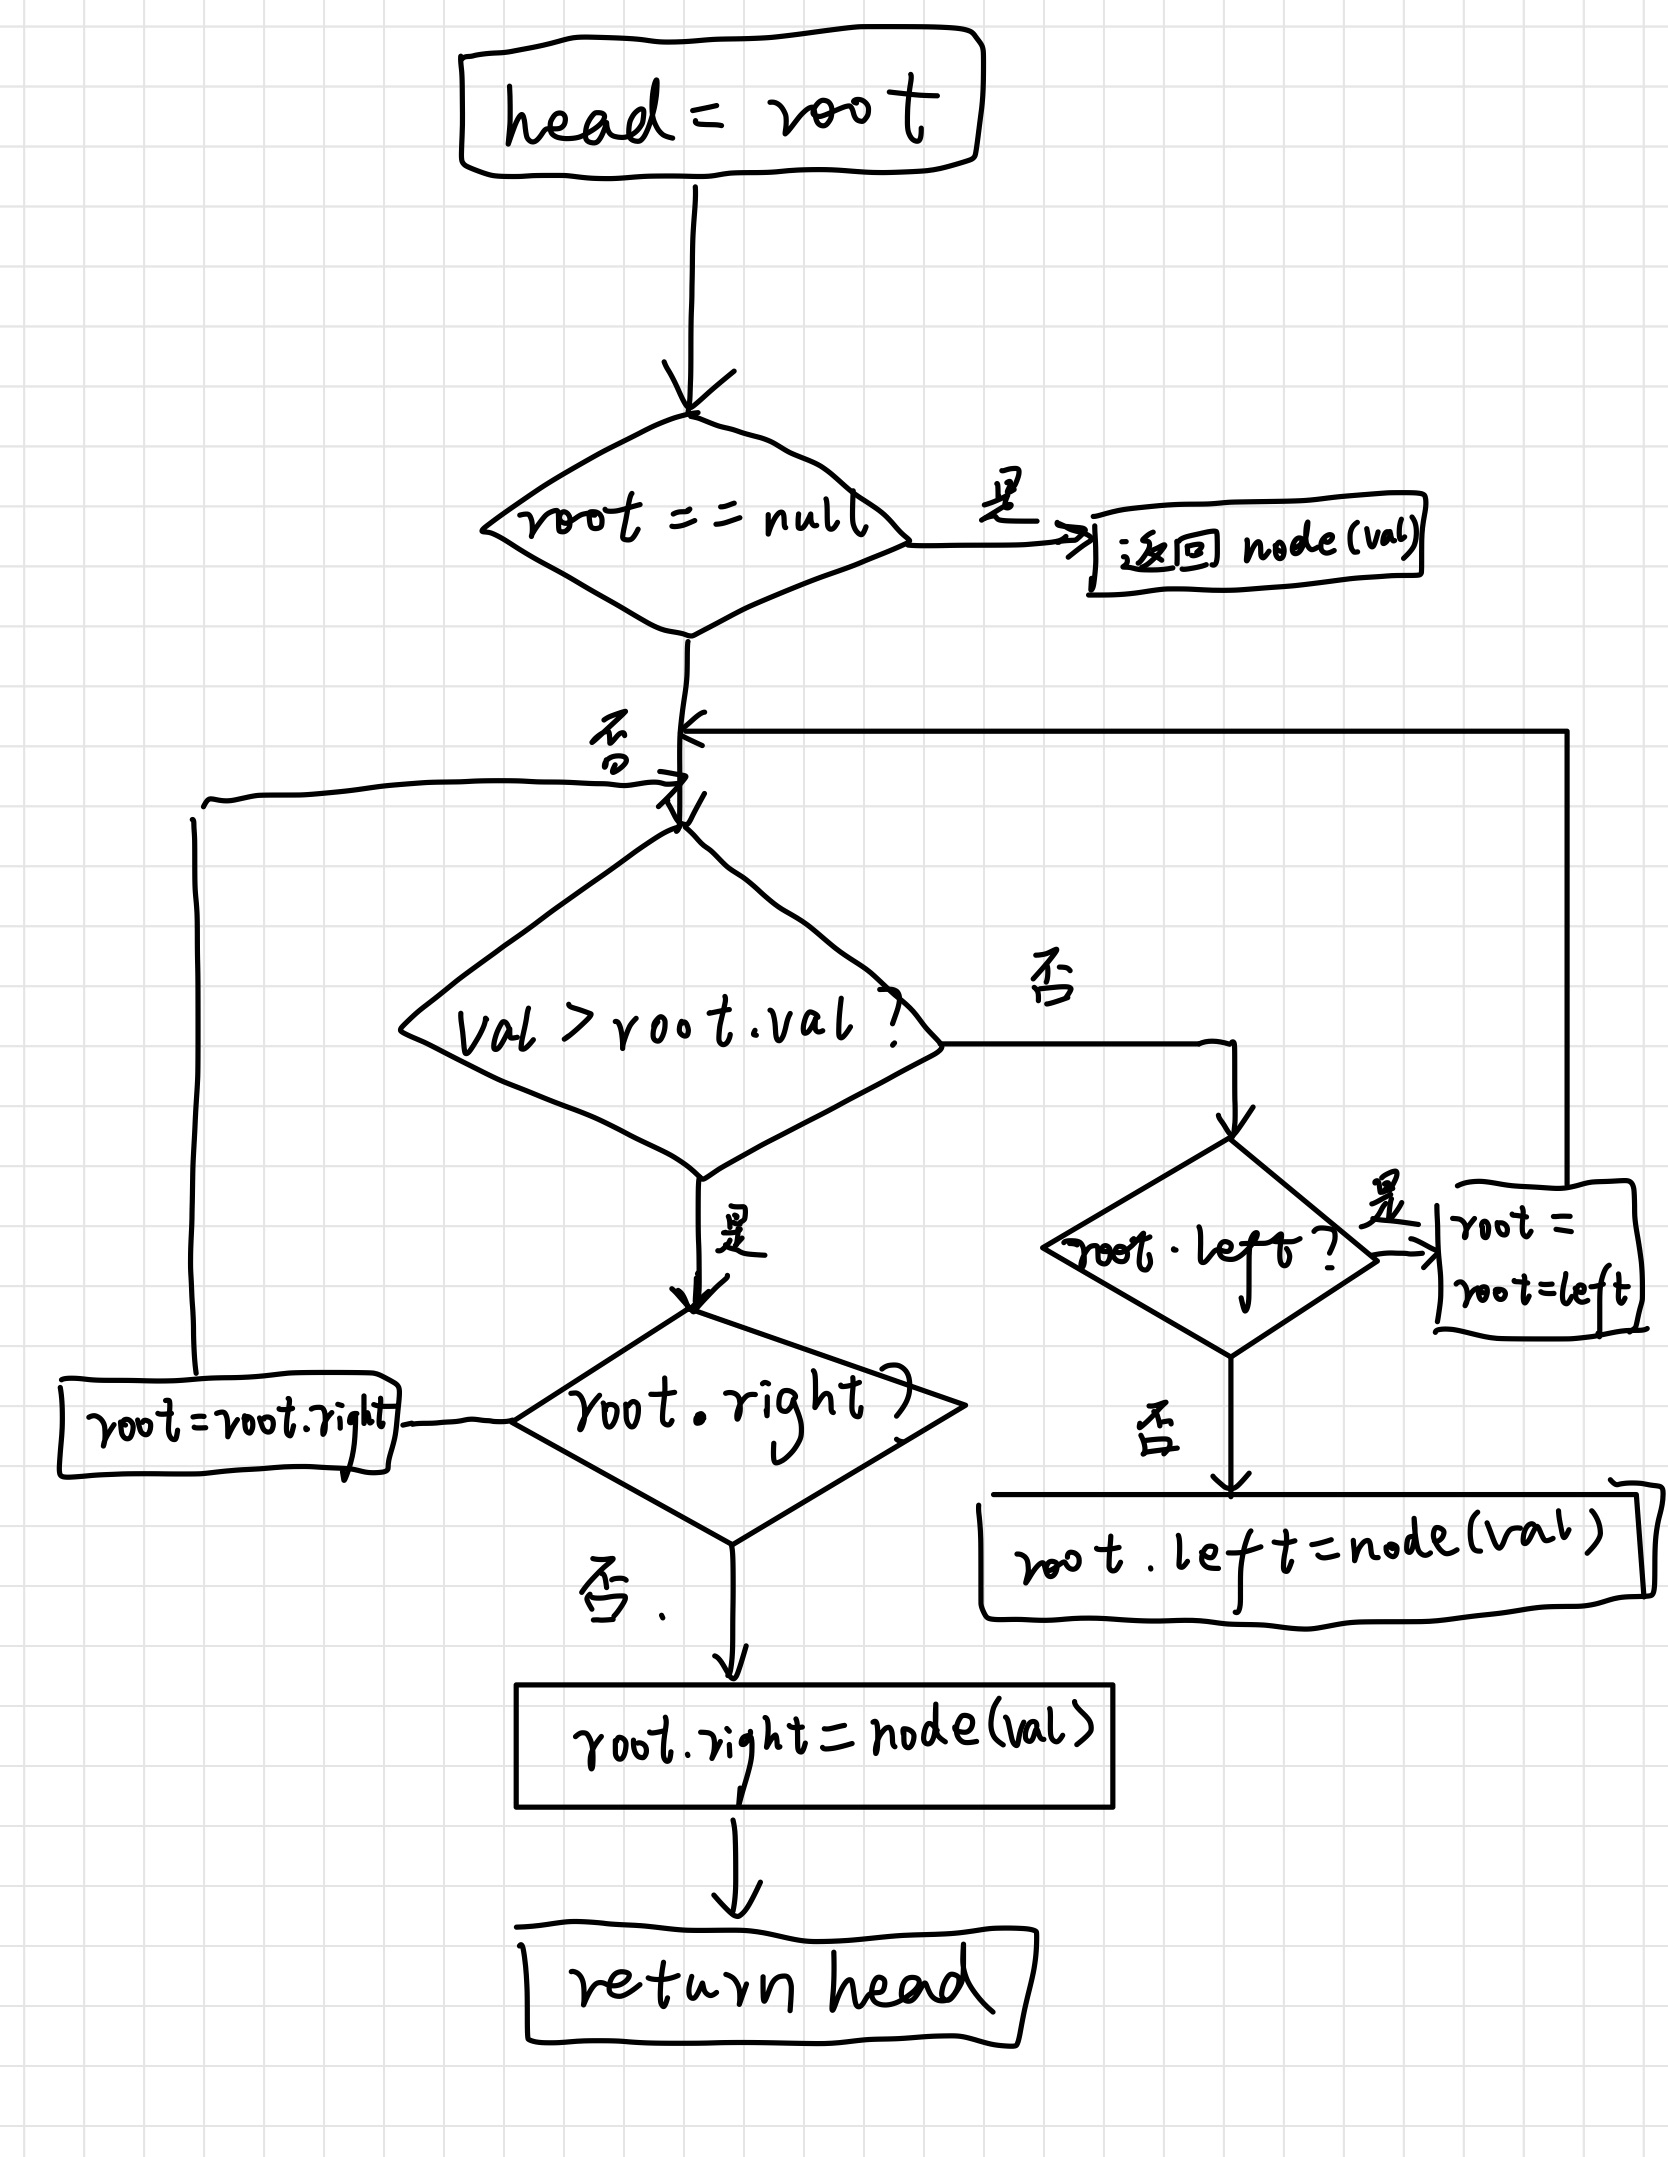 head = root
root == null
是
返回 node(val)
否
val > root.val ?
否
是
root.left ?
是
root =
root=left
root.right ?
root=root.right
否
root.left=node(val)
否.
root.right=node(val)
return head